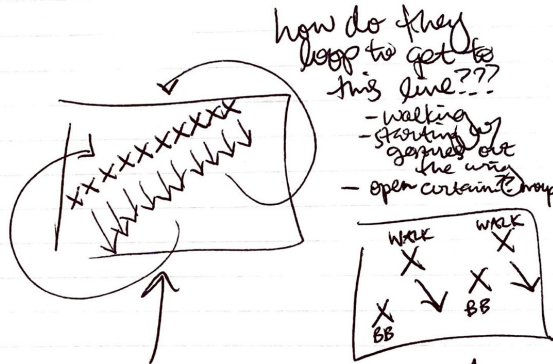 how do they
loop to get to
this line???
- walking
- starting
gestures out
the wing
- open curtain
X X X X X X X X X X
WALK
WALK
X
X
X
X
BB
BB